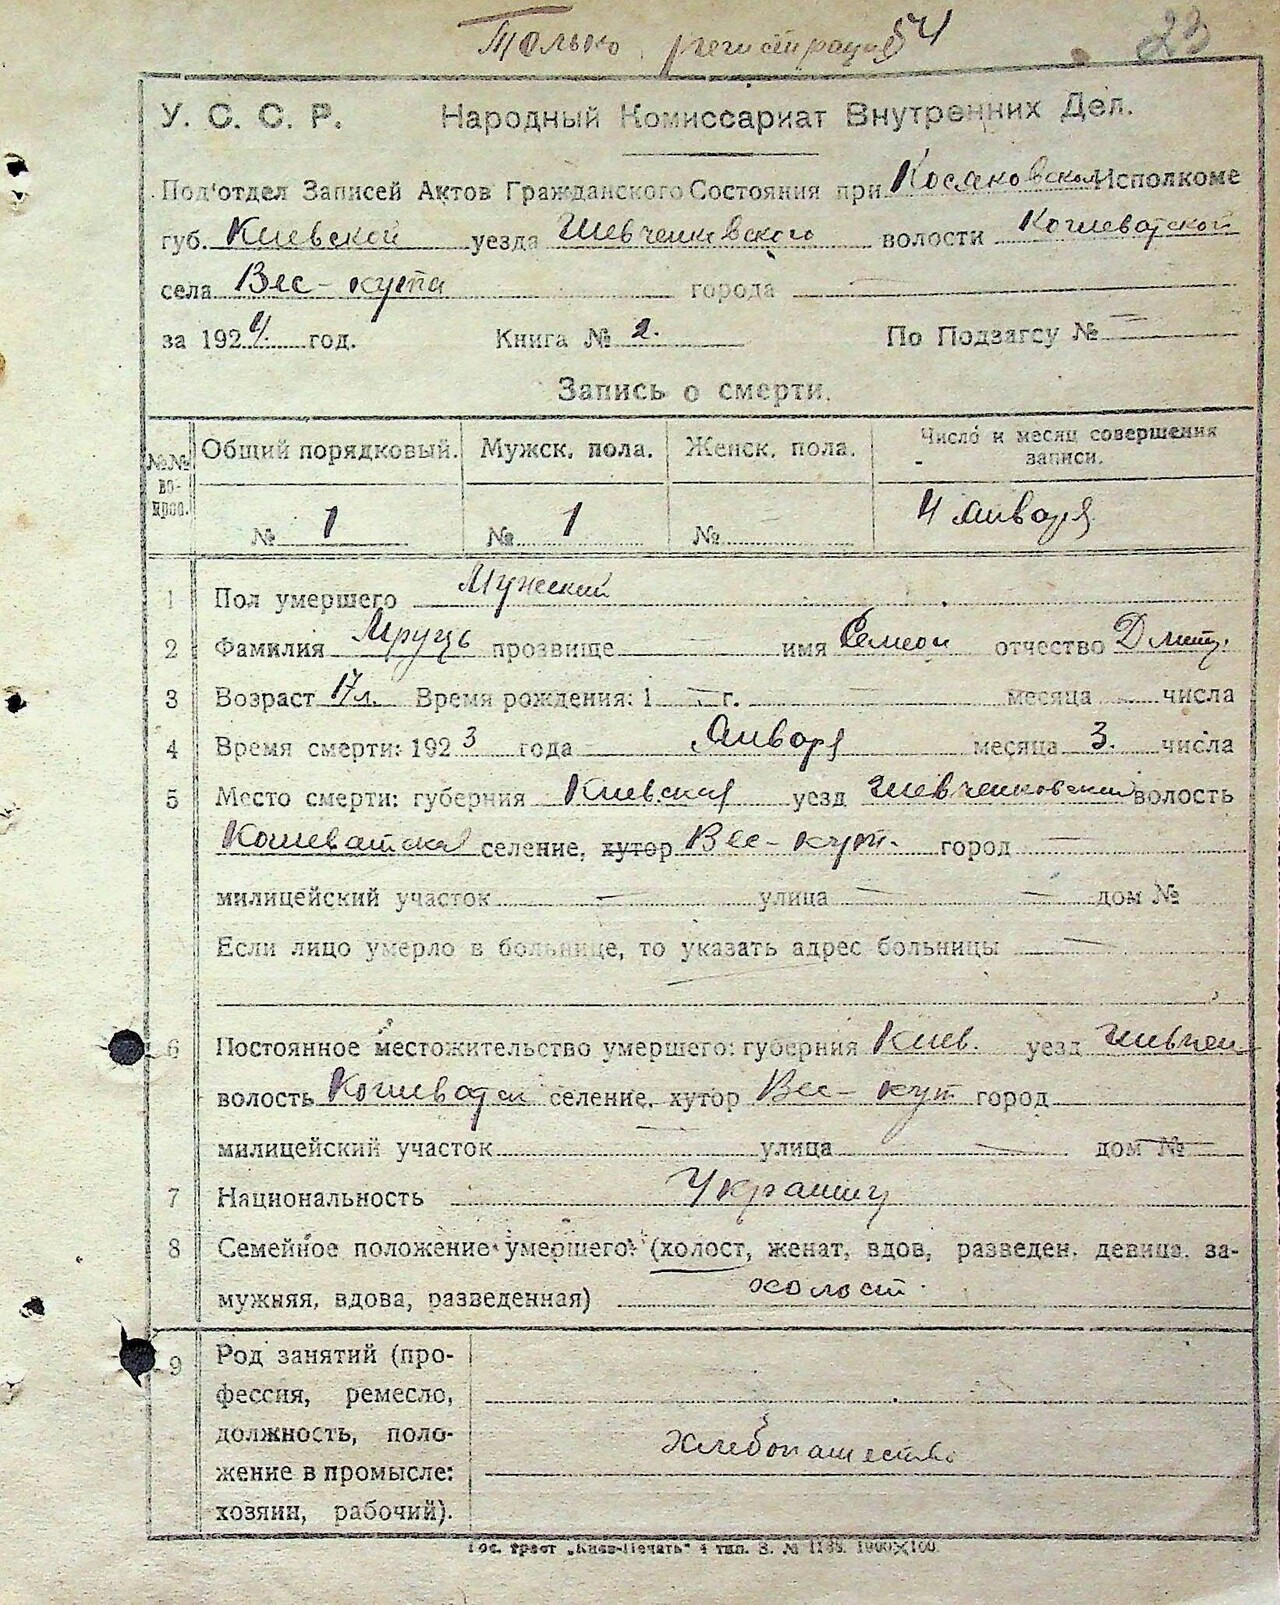 Только регистрация 54 23
У. С. С. Р. Народный Комиссариат Внутренних Дел.
Под'отдел Записей Актов Гражданского Состояния при Косяковском Исполкоме
губ. Киевской уезда Шевченковского волости Кошеватской
села Вес-кута города —
за 192 год. Книга № 2. По Подзагсу № —
Запись о смерти.
№№ во-прос. Общий порядковый. Мужск. пола. Женск. пола. Число и месяц совершения записи.
№ 1 № 1 № — 4 января
1 Пол умершего Мужский
2 Фамилия прозвище — имя Семеон отчество Дмит.
3 Возраст 17 л. Время рождения: 1 — г. — месяца — числа
4 Время смерти: 1923 года Января месяца 3. числа
5 Место смерти: губерния Киевская уезд Шевченковский волость
Кошеватская селение, хутор Вес-кут. город —
милицейский участок — улица — — дом №
Если лицо умерло в больнице, то указать адрес больницы —
6 Постоянное местожительство умершего: губерния Киев. уезд Шевчен
волость Кошеватск селение, хутор Вес-кут город
милицейский участок — улица — дом № —
7 Национальность Украинец
8 Семейное положение умершего (холост, женат, вдов, разведен, девица, за-
мужняя, вдова, разведенная) холост.
9 Род занятий (про-
фессия, ремесло,
должность, поло-
жение в промысле:
хозяин, рабочий).
хлебопашество
Гос. трест „Киев-Печать" 4 тип. З. № 1188. 1000×100.